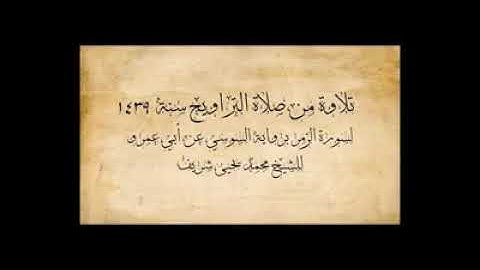 تلاوة من صلاة التراويح سنة ١٤٣٩
لسورة الزمر برواية السوسي عن أبي عمرو
للشيخ محمد يحيى شريف